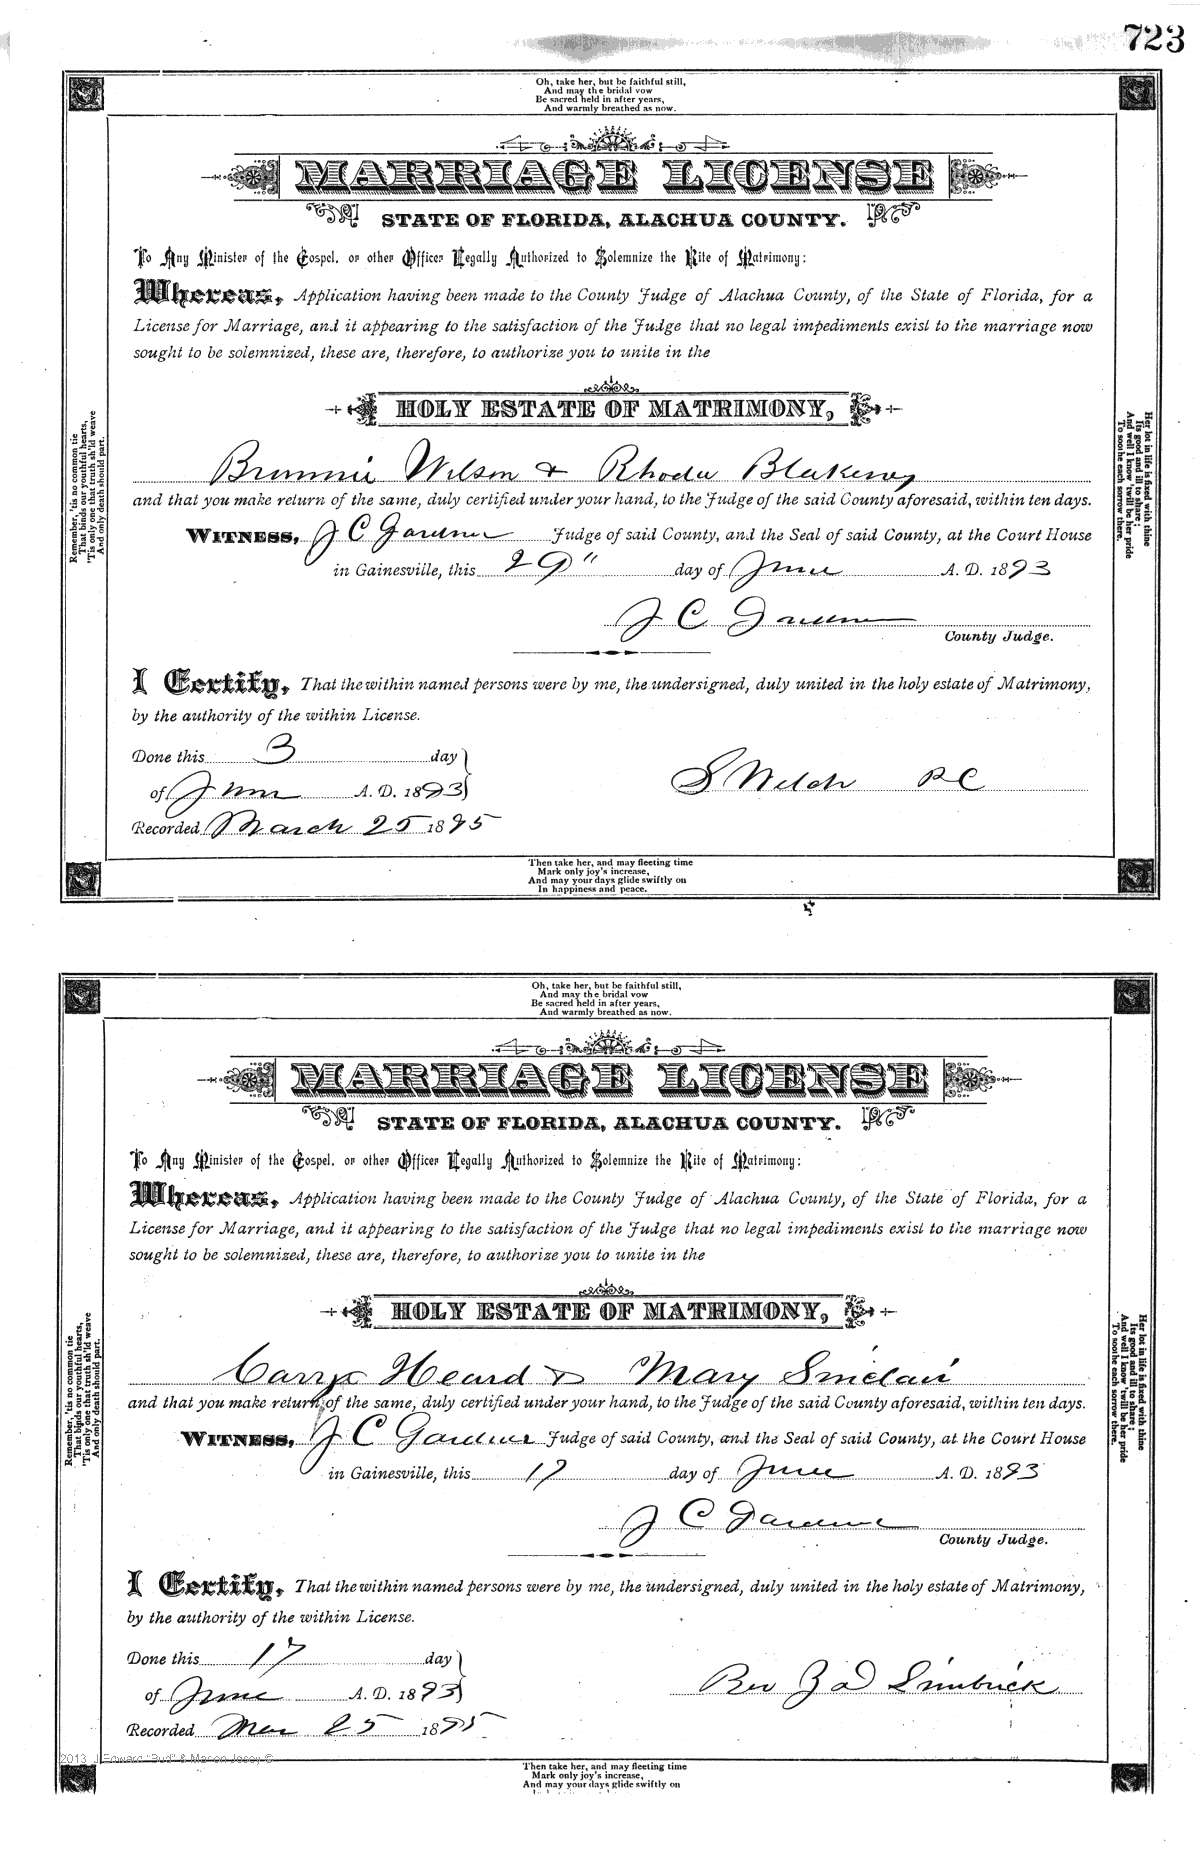 723
Oh, take her, but be faithful still,
And may the bridal vow
Be sacred held in after years,
And warmly breathed as now.
MARRIAGE LICENSE
STATE OF FLORIDA, ALACHUA COUNTY.
To Any Minister of the Gospel, or other Officer Legally Authorized to Solemnize the Rite of Matrimony:
Whereas, Application having been made to the County Judge of Alachua County, of the State of Florida, for a
License for Marriage, and it appearing to the satisfaction of the Judge that no legal impediments exist to the marriage now
sought to be solemnized, these are, therefore, to authorize you to unite in the
HOLY ESTATE OF MATRIMONY,
Wilson & Rhoda Blakeney
and that you make return of the same, duly certified under your hand, to the Judge of the said County aforesaid, within ten days.
WITNESS, J C Gardner Judge of said County, and the Seal of said County, at the Court House
in Gainesville, this 29" day of June A. D. 1893
J C Gardner
County Judge.
I Certify, That the within named persons were by me, the undersigned, duly united in the holy estate of Matrimony,
by the authority of the within License.
Done this 3 day
of June A. D. 1893
S Welch
Recorded March 25 1895
Remember, 'tis no common tie
That binds our youthful hearts,
'Tis only one that truth sh'ld weave
And only death should part.
Her lot in life is fixed with thine
Its good and ill to share;
And well I know 'twill be her pride
To soothe each sorrow there.
Then take her, and may fleeting time
Mark only joy's increase,
And may your days glide swiftly on
In happiness and peace.
Oh, take her, but be faithful still,
And may the bridal vow
Be sacred held in after years,
And warmly breathed as now.
MARRIAGE LICENSE
STATE OF FLORIDA, ALACHUA COUNTY.
To Any Minister of the Gospel, or other Officer Legally Authorized to Solemnize the Rite of Matrimony:
Whereas, Application having been made to the County Judge of Alachua County, of the State of Florida, for a
License for Marriage, and it appearing to the satisfaction of the Judge that no legal impediments exist to the marriage now
sought to be solemnized, these are, therefore, to authorize you to unite in the
HOLY ESTATE OF MATRIMONY,
Heard & Mary Sinclair
and that you make return of the same, duly certified under your hand, to the Judge of the said County aforesaid, within ten days.
WITNESS, J C Gardner Judge of said County, and the Seal of said County, at the Court House
in Gainesville, this 17 day of June A. D. 1893
J C Gardner
County Judge.
I Certify, That the within named persons were by me, the undersigned, duly united in the holy estate of Matrimony,
by the authority of the within License.
Done this 17 day
of June A. D. 1893
Rev
Recorded Mar 25 1895
Remember, 'tis no common tie
That binds our youthful hearts,
'Tis only one that truth sh'ld weave
And only death should part.
Her lot in life is fixed with thine
Its good and ill to share;
And well I know 'twill be her pride
To soothe each sorrow there.
2013 J Edward "Bud" & Marion Josey ©
Then take her, and may fleeting time
Mark only joy's increase,
And may your days glide swiftly on